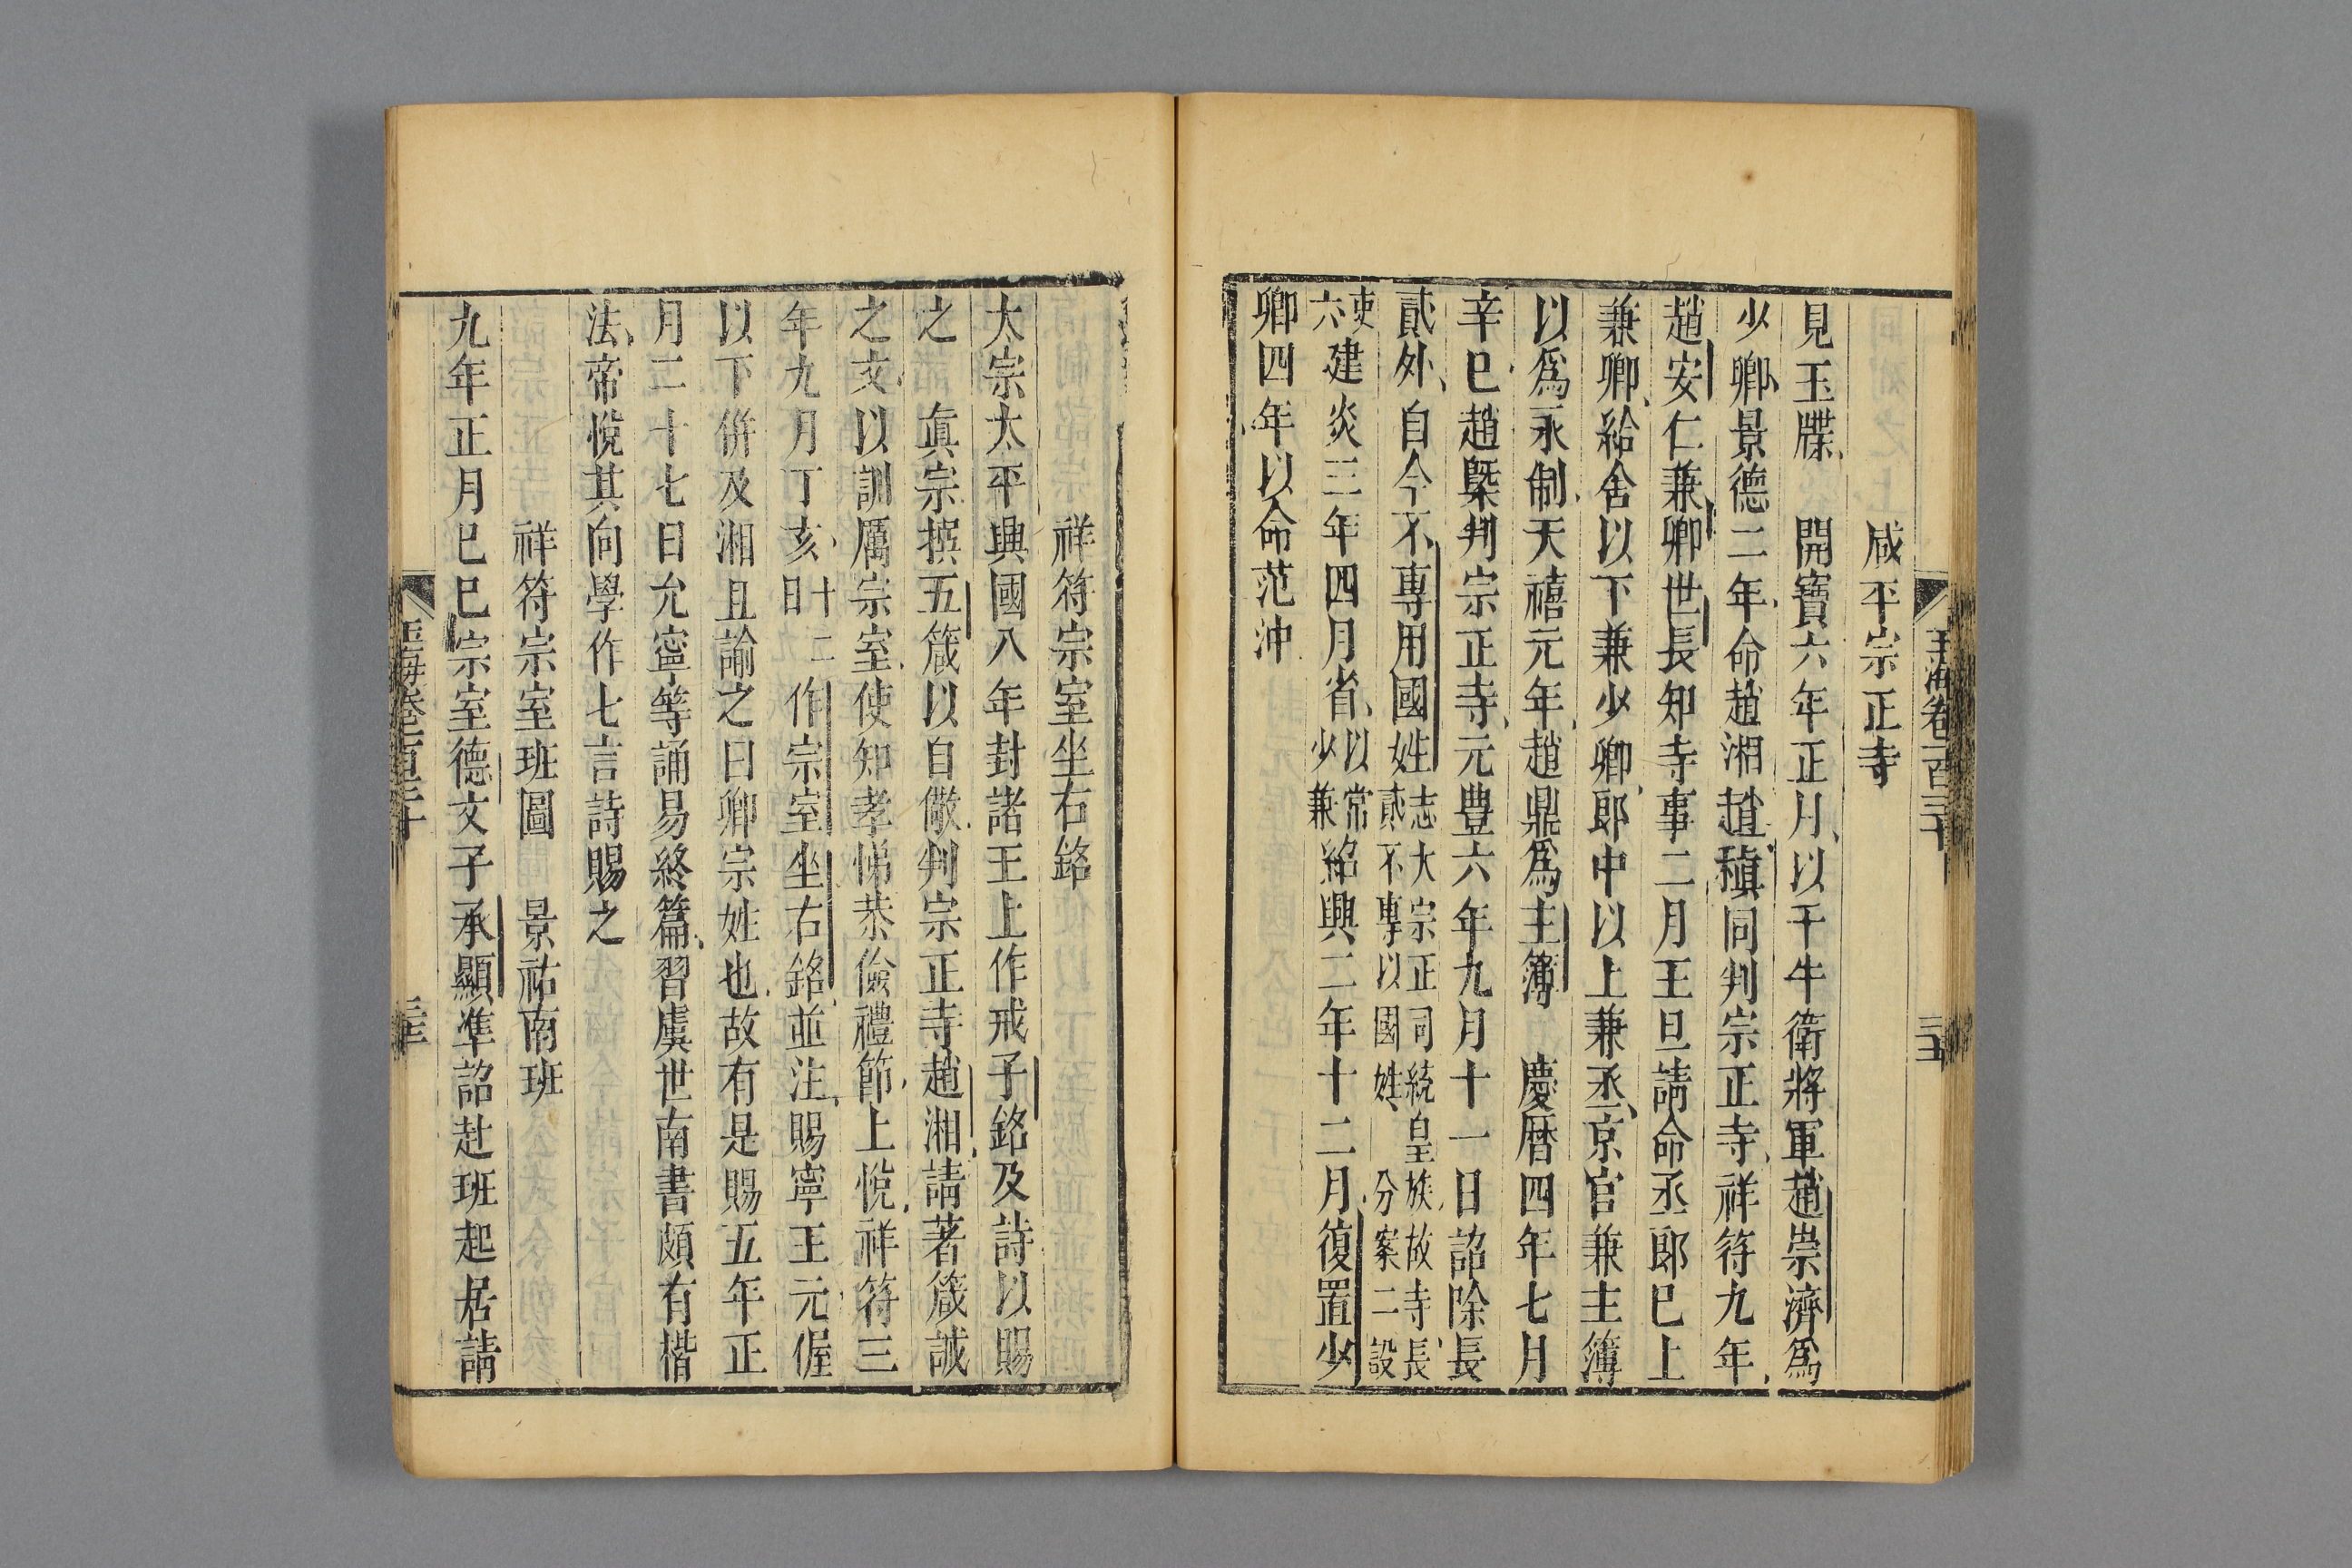 玉海卷一百三十
咸平宗正寺
見玉牒　開寶六年正月以千牛衛將軍趙崇濟爲
少卿景德二年命趙湘趙稹同判宗正寺祥符九年
趙安仁兼卿世長知寺事二月王旦請命丞郎已上
兼卿給舍以下兼少卿郎中以上兼丞京官兼主簿
以爲永制天禧元年趙鼎爲主簿　慶曆四年七月
辛巳趙槩判宗正寺元豊六年九月十一日詔除長
貳外自今不專用國姓志大宗正司統皇族故寺長貳不專以國姓分案二設
吏六建炎三年四月省以常少兼紹興二年十二月復置少
卿四年以命范沖
祥符宗室坐右銘
太宗太平興國八年封諸王上作戒子銘及詩以賜
之　眞宗撰五箴以自儆判宗正寺趙湘請著箴誡
之文以訓厲宗室使知孝悌恭儉禮節上悅祥符三
年九月丁亥十二日作宗室坐右銘並注賜寧王元偓
以下併及湘且諭之曰卿宗姓也故有是賜五年正
月二十七日允寧等誦易終篇習虞世南書頗有楷
法帝悅其向學作七言詩賜之
祥符宗室班圖　景祐南班
九年正月巳巳宗室德文子承顯準詔赴班起居請
玉海卷一百三十